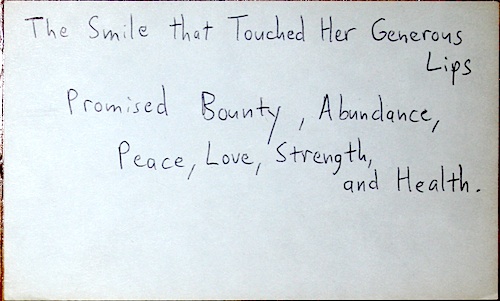 The Smile that Touched Her Generous
Lips
Promised Bounty, Abundance,
Peace, Love, Strength,
and Health.